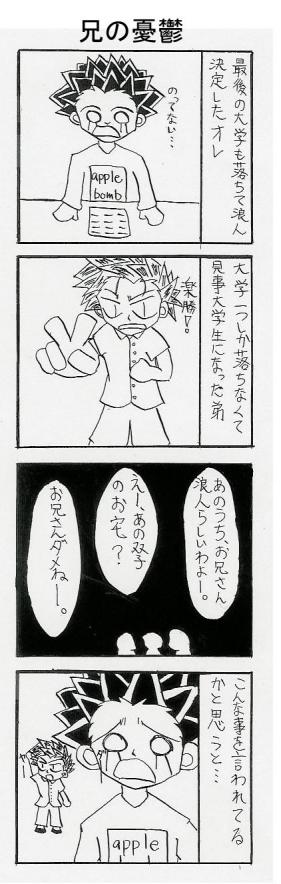 兄の憂鬱
最後の大学も落ちて浪人
決定したオレ
のってない…
apple
bomb
大学一つしか落ちなくて
見事大学生になった弟
楽勝!
あのうち、お兄さん
浪人らしいわよー。
えー、あの双子
のお宅?
お兄さんダメねー。
こんな事を言われてる
かと思うと…
apple